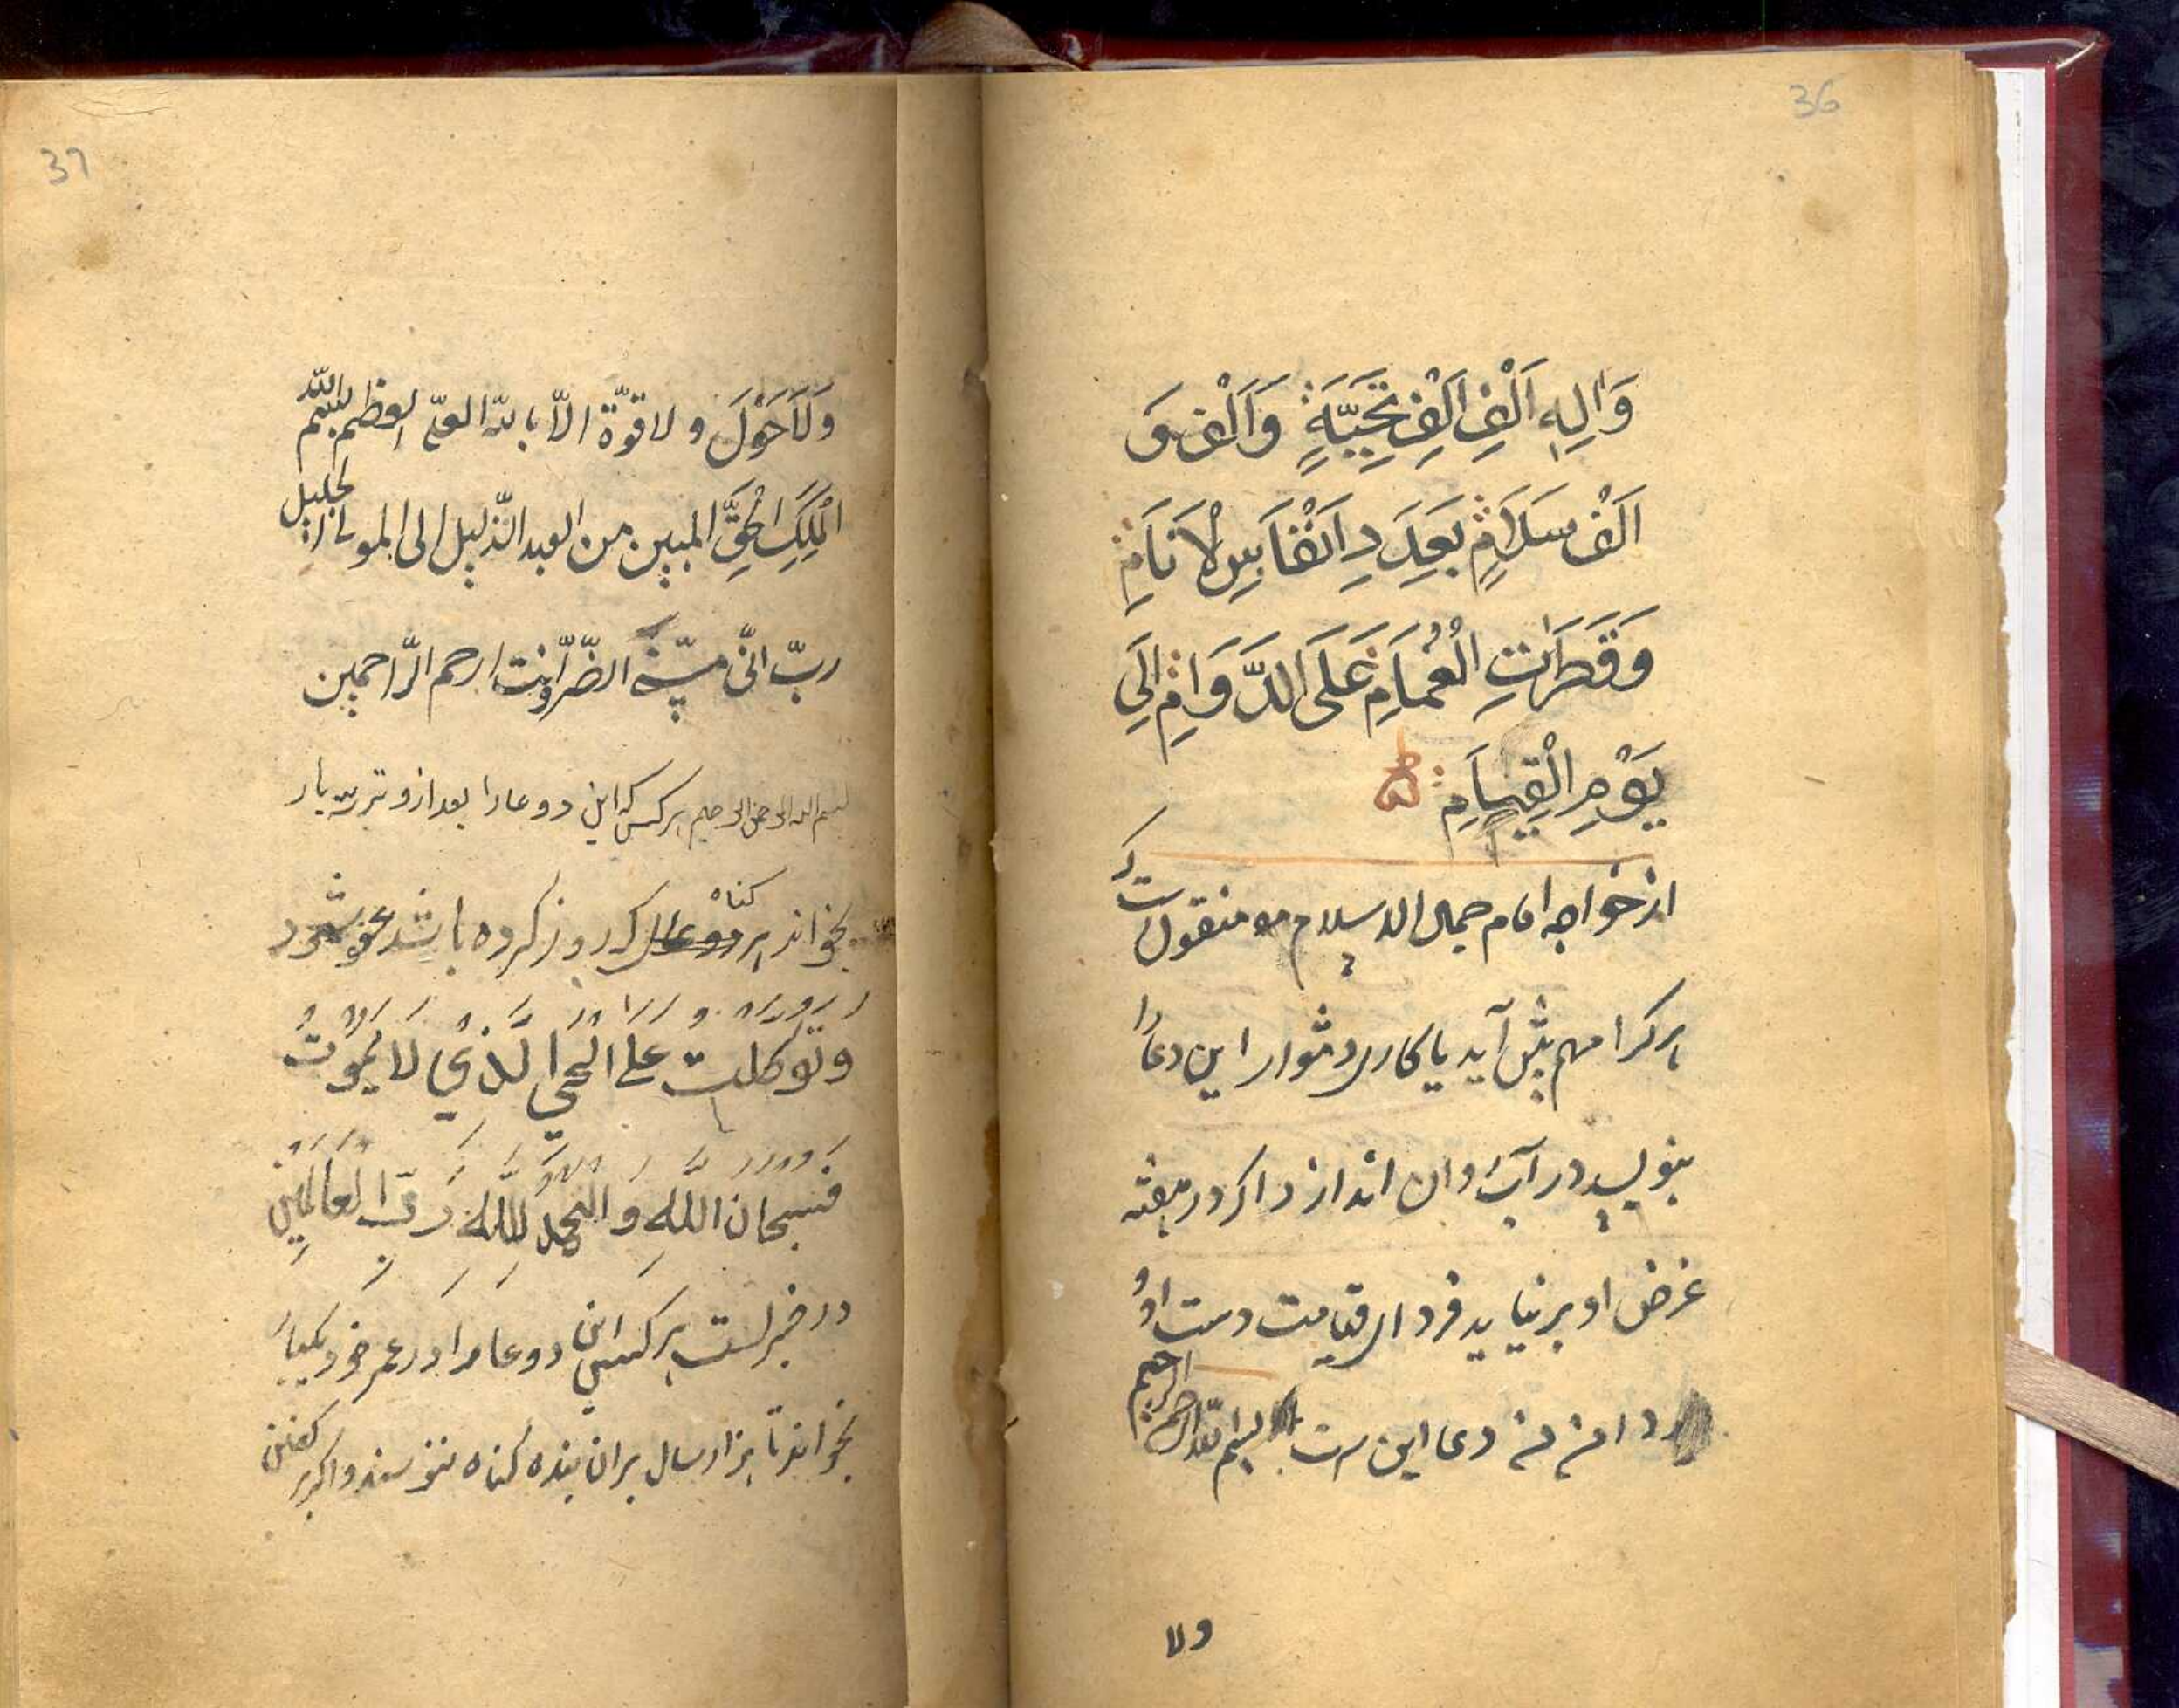 36
وَاٰلِهٖ اَلْفِ اَلْفِ تَحِيَّةٍ وَاَلْفَ وَ
اَلْفَ سَلَامٍ بِعَدَدِ اَنْفَاسِ الْاَنَامِ
وَقَطَرَاتِ الْغُمَامِ عَلَى الدَّوَامِ اِلَى
يَوْمِ الْقِيَامِ
از خواجه امام جمال الاسلام منقول است كه
هركرا مهم پيش آيد يا كارى دشوار اين دعا را
بنويسد در آب روان اندازد اكر در هفته
غرض او برنيايد فرداى قيامت دست او و
دامن من دعا اين ست بسم الله الرحمن الرحيم
ولا
37
وَلَاحَوْلَ ولا قوّة الّا بالله العلىّ العظيم بسم الله
الْمَلِكِ الْحَقِّ المبين من العبد الذّليل الى المولى الجليل
ربّ انّى مسّنى الضّرّ وانت ارحم الرّاحمين
بسم الله الرحمن الرحيم هر كس كه اين دو عا را بعد از وتر سه بار
بخواند هر كناه كه در روز كرده باشد عفو شود
وتَوَكَّلْتُ عَلَى الْحَيِّ الَّذِيْ لَا يَمُوْتُ
فَسُبْحَانَ اللّٰهِ وَالْحَمْدُ لِلّٰهِ رَبِّ الْعَالَمِيْنَ
در خبرست هر كسى اين دو عا را در عمر خود يكبار
بخواند تا هزار سال بران بنده كناه ننويسند و اكر بر كفن